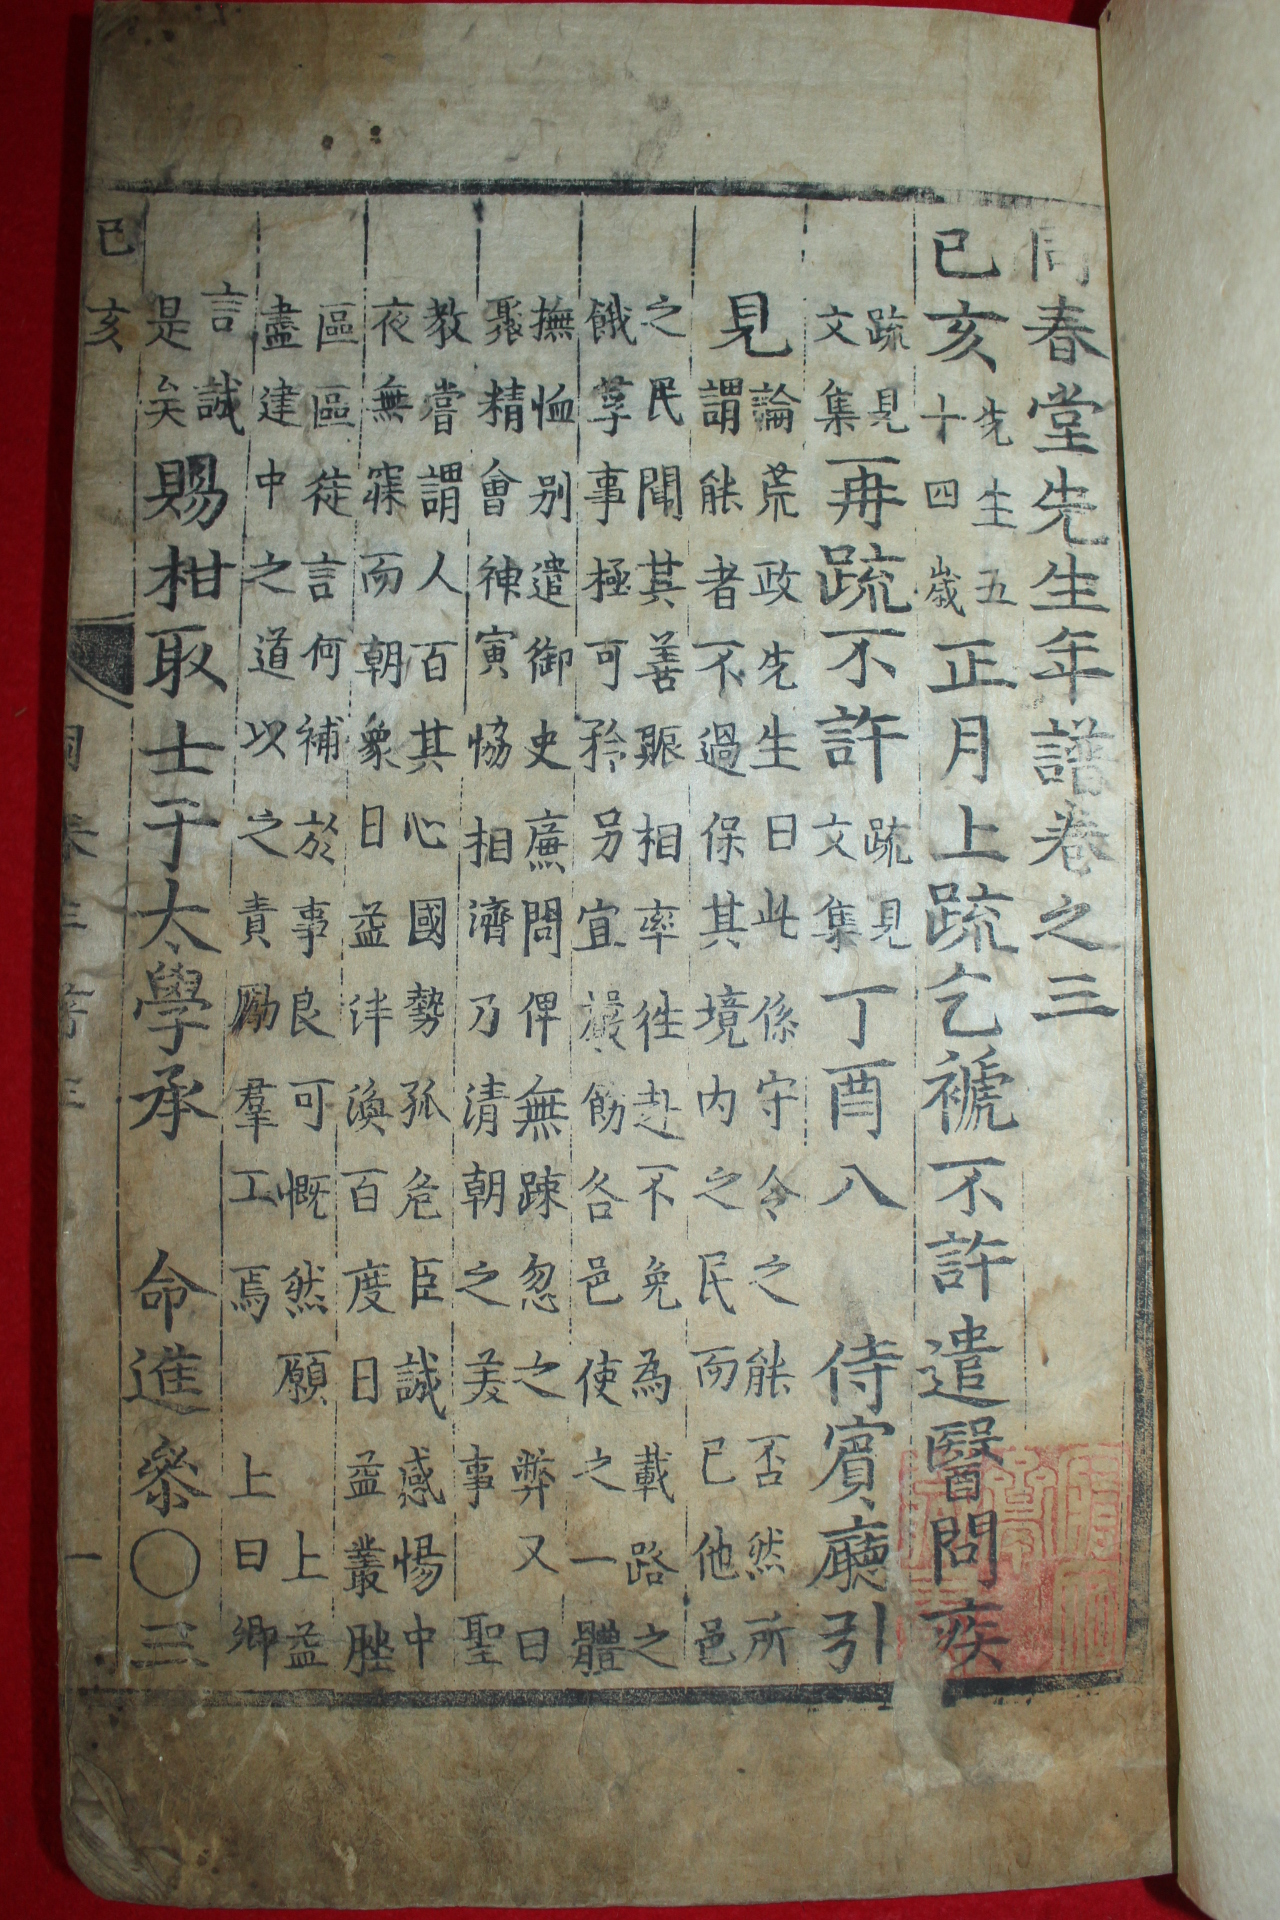 同春堂先生年譜卷之三
己亥先生五十四歲正月上疏乞褫不許遣醫問疾
疏見文集再疏不許疏見文集丁酉入 侍賓廳引
見論荒政先生曰此係守令之能否然所
謂能者不過保其境内之民而已他邑
之民聞其善賑相率徃赴不免為載路之
餓莩事極可矜另宜嚴飭各邑使之一體
撫恤别遣御史廉問俾無踈忽之弊又曰
聚精會神寅恊相濟乃清朝之美事 聖
教嘗謂人百其心國勢孤危臣誠感惕中
夜無寐而朝象日益泮渙百度日益叢脞
區區徒言何補於事良可慨然願 上益
盡建中之道以之責勵羣工焉 上曰卿
言誠是矣賜柑取士于太學承 命進參○三
己亥
一